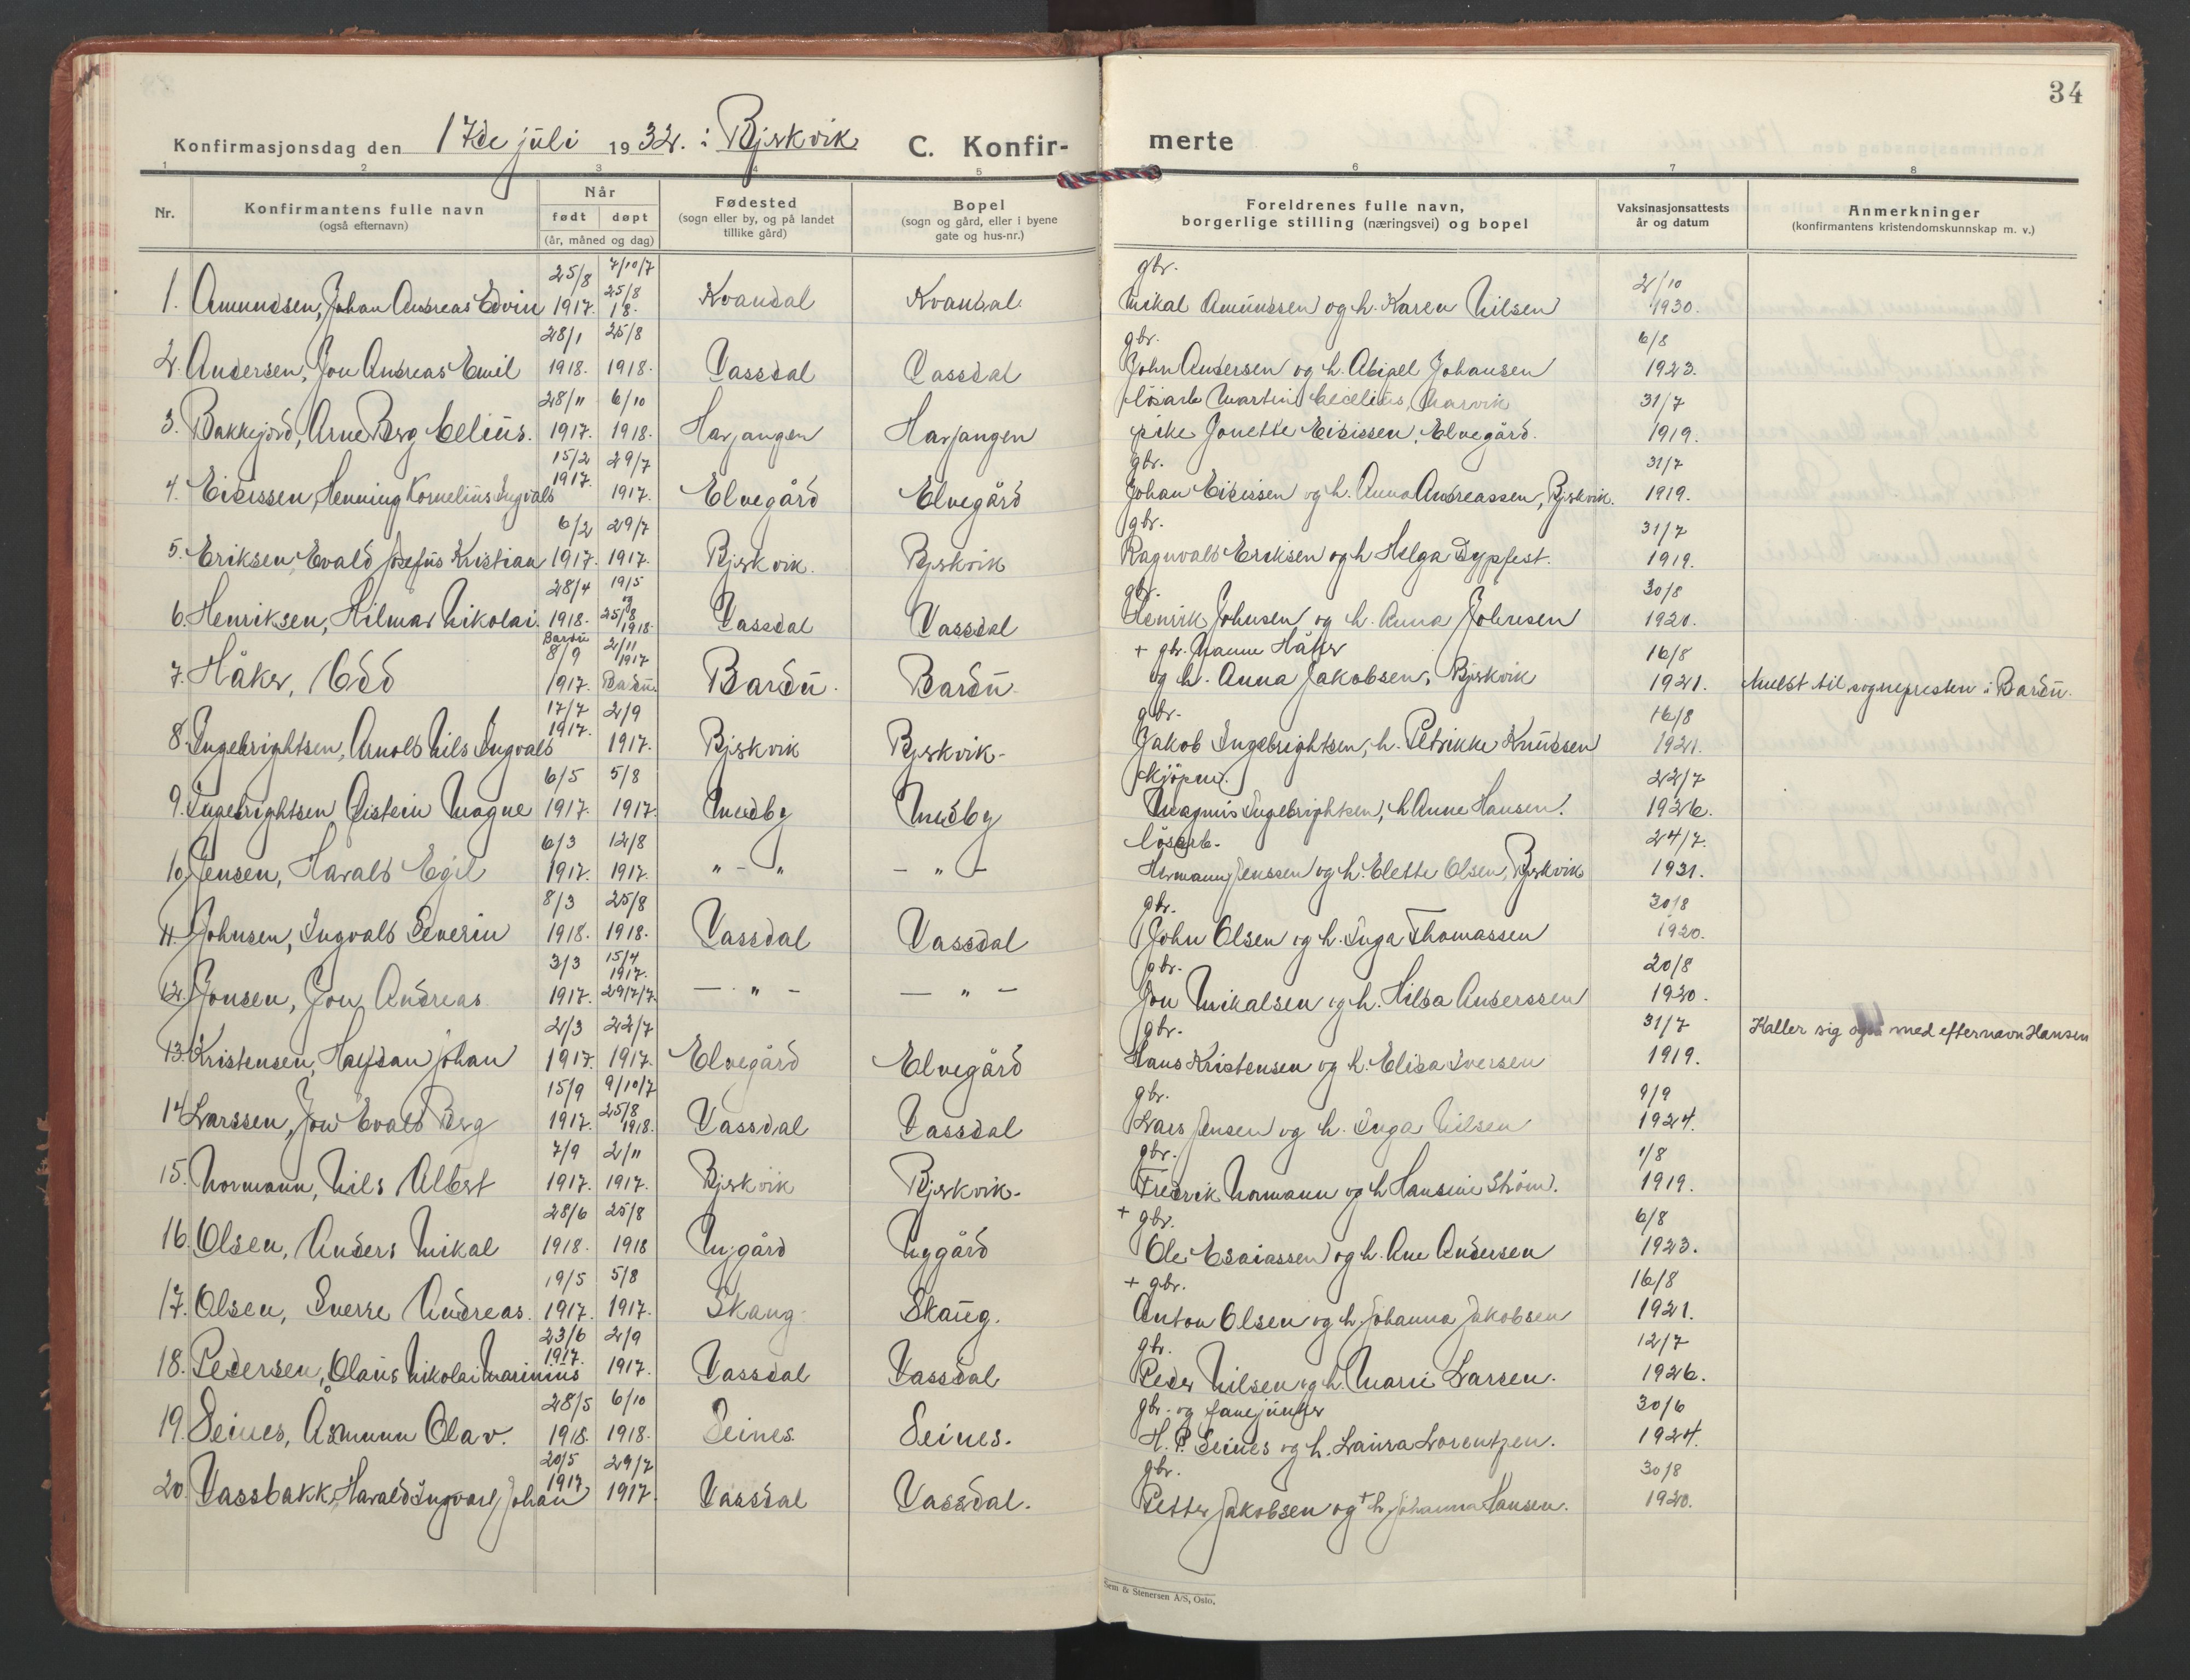 34
Konfirmasjonsdag den 17de juli 1932. i Bjerkvik C. Konfir- merte
1 2 3 4 5 6 7 8
Nr. Konfirmantens fulle navn (også efternavn) Når født døpt (år, måned og dag) Fødested (sogn eller by, og på landet tillike gård) Bopel (sogn og gård, eller i byene gate og hus-nr.) Foreldrenes fulle navn, borgerlige stilling (næringsvei) og bopel Vaksinasjonsattests år og datum Anmerkninger (konfirmantens kristendomskunnskap m. v.)
25/8 7/10/7 gbr. 2/10
1. Amundsen, Johan Andreas Edvin 1917. 25/8 18. Kvandal Kvandal Mikal Amundsen og h. Karen Nilsen 1930.
28/1 25/8 gbr. 6/8
2. Andersen, Jon Andreas Emil 1918. 1918. Vassdal Vassdal John Andersen og h. Abigel Johansen 1923.
28/11 6/10 lösarb Martin Cecelius, Narvik 31/7
3. Bakkejord, Arne Berg Celius. 1917. 1918. Harjangen Harjangen pike Jonette Eidissen, Elvegård. 1919.
15/2 29/7 gbr. 31/7
4. Eidissen, Henning Kornelius Ingvald 1917. 1917. Elvegård Elvegård Johan Eidissen og h. Anna Andreassen, Bjerkvik. 1919.
6/2 29/7 gbr. 31/7
5. Eriksen, Evald Josefus Kristian 1917. 1917. Bjerkvik. Bjerkvik Ragnvald Eriksen og h Helga Dypfest. 1919.
28/4 19/5 og gbr. 30/8
6. Henriksen, Hilmar Nikolai. 1918. 25/8 1918. Vassdal Vassdal Henrik Johnsen og h. Anna Johnsen 1920.
Bardu 8/9 2/11 1917 + gbr. Håker 16/8
7. Håker, Odd 1917. Bardu. Bardu. Bardu. og h. Anna Jakobsen, Bjerkvik 1921. Meldt til sognepresten i Bardu.
17/7 2/9 gbr. 16/8
8. Ingebrightsen, Arnold Nils Ingvald 1917. 1917. Bjerkvik Bjerkvik- Jakob Ingebrightsen, h. Petrikke Knudsen 1921.
6/5 5/8 Kjöpm. 22/7
9. Ingebrightsen Øistein Magne 1917. 1917. Medby Medby Magnus Ingebrightsen, h Anne Hansen. 1926.
6/3 12/8 lösarb. 24/7.
10. Jensen, Harald Egil 1917. 1917. " - " - " - Hermann Jenssen og h. Elette Olsen, Bjerkvik 1931.
8/3 25/8 gbr. 30/8
11. Johnsen, Ingvald Severin 1918. 1918. Vassdal Vassdal John Olsen og h. Inga Thomassen 1920.
3/3 15/4 1917. gbr. 20/8
12. Jonsen, Jon Andreas 1917. 29/7/7. - " - - " - Jon Mikalsen og h. Hilda Anderssen 1920.
2/3 22/7 gbr. 31/7 Kaller sig også med efternavn Hansen
13. Kristensen, Halfdan Johan 1917. 1917. Elvegård Elvegård Hans Kristensen og h. Elisa Iversen 1919.
15/9 9/10/7 gbr. 9/9
14. Larssen, Jon Evald Berg 1917. 25/8 1918. Vassdal Vassdal Lars Jensen og h. Inga Nilsen 1924.
7/9 2/11 gbr. 1/8
15. Normann, Nils Albert 1917. 1917. Bjerkvik Bjerkvik. Fredrik Normann og h Hansine Ström. 1919.
28/6 25/8 + gbr. 6/8
16. Olsen, Anders Mikal 1918. 1918 Nygård Nygård Ole Esaiassen og h. Ane Andersen 1923.
19/5 5/8 + gbr. 16/8
17. Olsen, Sverre Andreas. 1917. 1917. Skaug. Skaug. Anton Olsen og h Johanna Jakobsen 1921.
23/6 2/9 gbr. 12/7
18. Pedersen, Olaus Nikolai Marinius 1917. 1917. Vassdal Vassdal Peder Nilsen og h. Marie Larsen. 1926.
28/5 6/10 gbr. og fanejunker 30/6
19. Seines, Åsmunn Olav. 1918. 1918. Seines. Seines. H. P. Seines og h. Laura Lorentzen. 1924.
20/5 29/7 gbr. 30/8
20. Vassbakk, Harald Ingvart Johan 1917. 1917. Vassdal Vassdal. Petter Jakobsen og + h Johanna Hansen. 1920.
Sem & Stenersen A/S, Oslo.